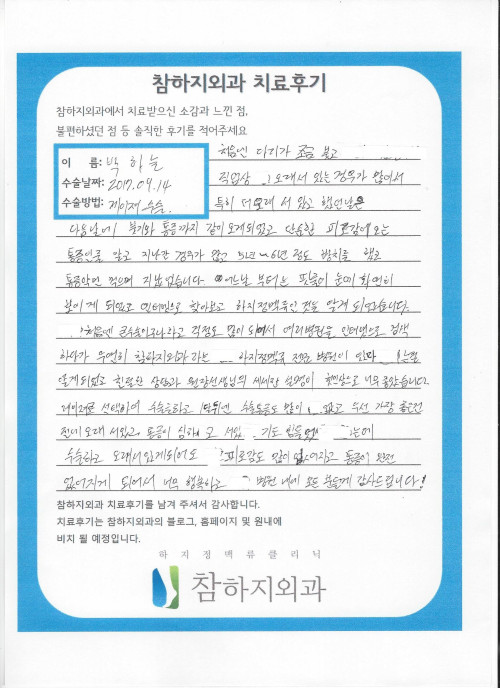 참하지외과 치료후기
참하지외과에서 치료받으신 소감과 느낀 점,
불편하셨던 점 등 솔직한 후기를 적어주세요
이 름: 박하늘
수술날짜: 2017.09.14
수술방법: 레이저 수술
처음엔 다리가 조금 붓고
직업상 오래서 있는 경우가 많아서
특히 더 오래 서 있고 했던날은
다음날에 붓기와 통증까지 같이 오게되었고 단순한 피로감에 오는
통증인줄 알고 지나간 경우가 많고 5년~6년 정도 방치를 했고
통증약만 먹으며 지냈었습니다 어느날 부터는 핏줄이 눈에 확연히
보이게 되었고 인터넷으로 찾아보고 하지정맥류인 것을 알게 되었습니다.
처음엔 큰수술이구나라고 걱정도 많이 되어서 여러병원을 인터넷으로 검색
하다가 우연히 참하지외과라는 하지정맥류 전문 병원이 있다
알게되었고 친절한 상담과 원장선생님의 세세한 설명이 첫인상으로 너무 좋았습니다.
레이저로 선택하여 수술을하고 수술통증도 많이 없고 우선 가장 좋은건
전에 오래 서있고 통증이 심하 고 서있 기도 힘들었 는데
수술하고 오래서있게되어도 피로감도 많이 없어지고 통증이 완전
없어지게 되어서 너무 행복하고 병원 내에 모든 분들께 감사드립니다!
참하지외과 치료후기를 남겨 주셔서 감사합니다.
치료후기는 참하지외과의 블로그, 홈페이지 및 원내에
비치 될 예정입니다.
하지정맥류클리닉
참하지외과